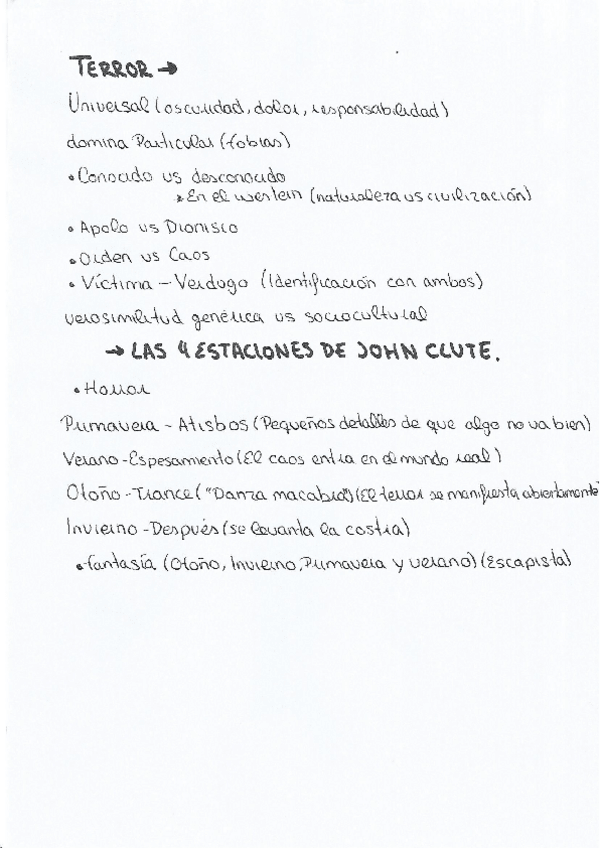 TERROR →
Universal (oscuridad, dolor, responsabilidad)
domina Particular (fobias)
• Conocido vs desconocido
* En el western (naturaleza vs civilización)
• Apolo vs Dionisio
• Orden vs Caos
• Víctima – Verdugo (Identificación con ambos)
verosimilitud genérica vs sociocultural
→ LAS 4 ESTACIONES DE JOHN CLUTE.
• Horror
Primavera - Atisbos (Pequeños detalles de que algo no va bien)
Verano - Espesamiento (El caos entra en el mundo real)
Otoño - Trance ("Danza macabra") (El terror se manifiesta abiertamente)
Invierno - Después (se levanta la costra)
• fantasía (Otoño, Invierno, Primavera y verano) (Escapista)